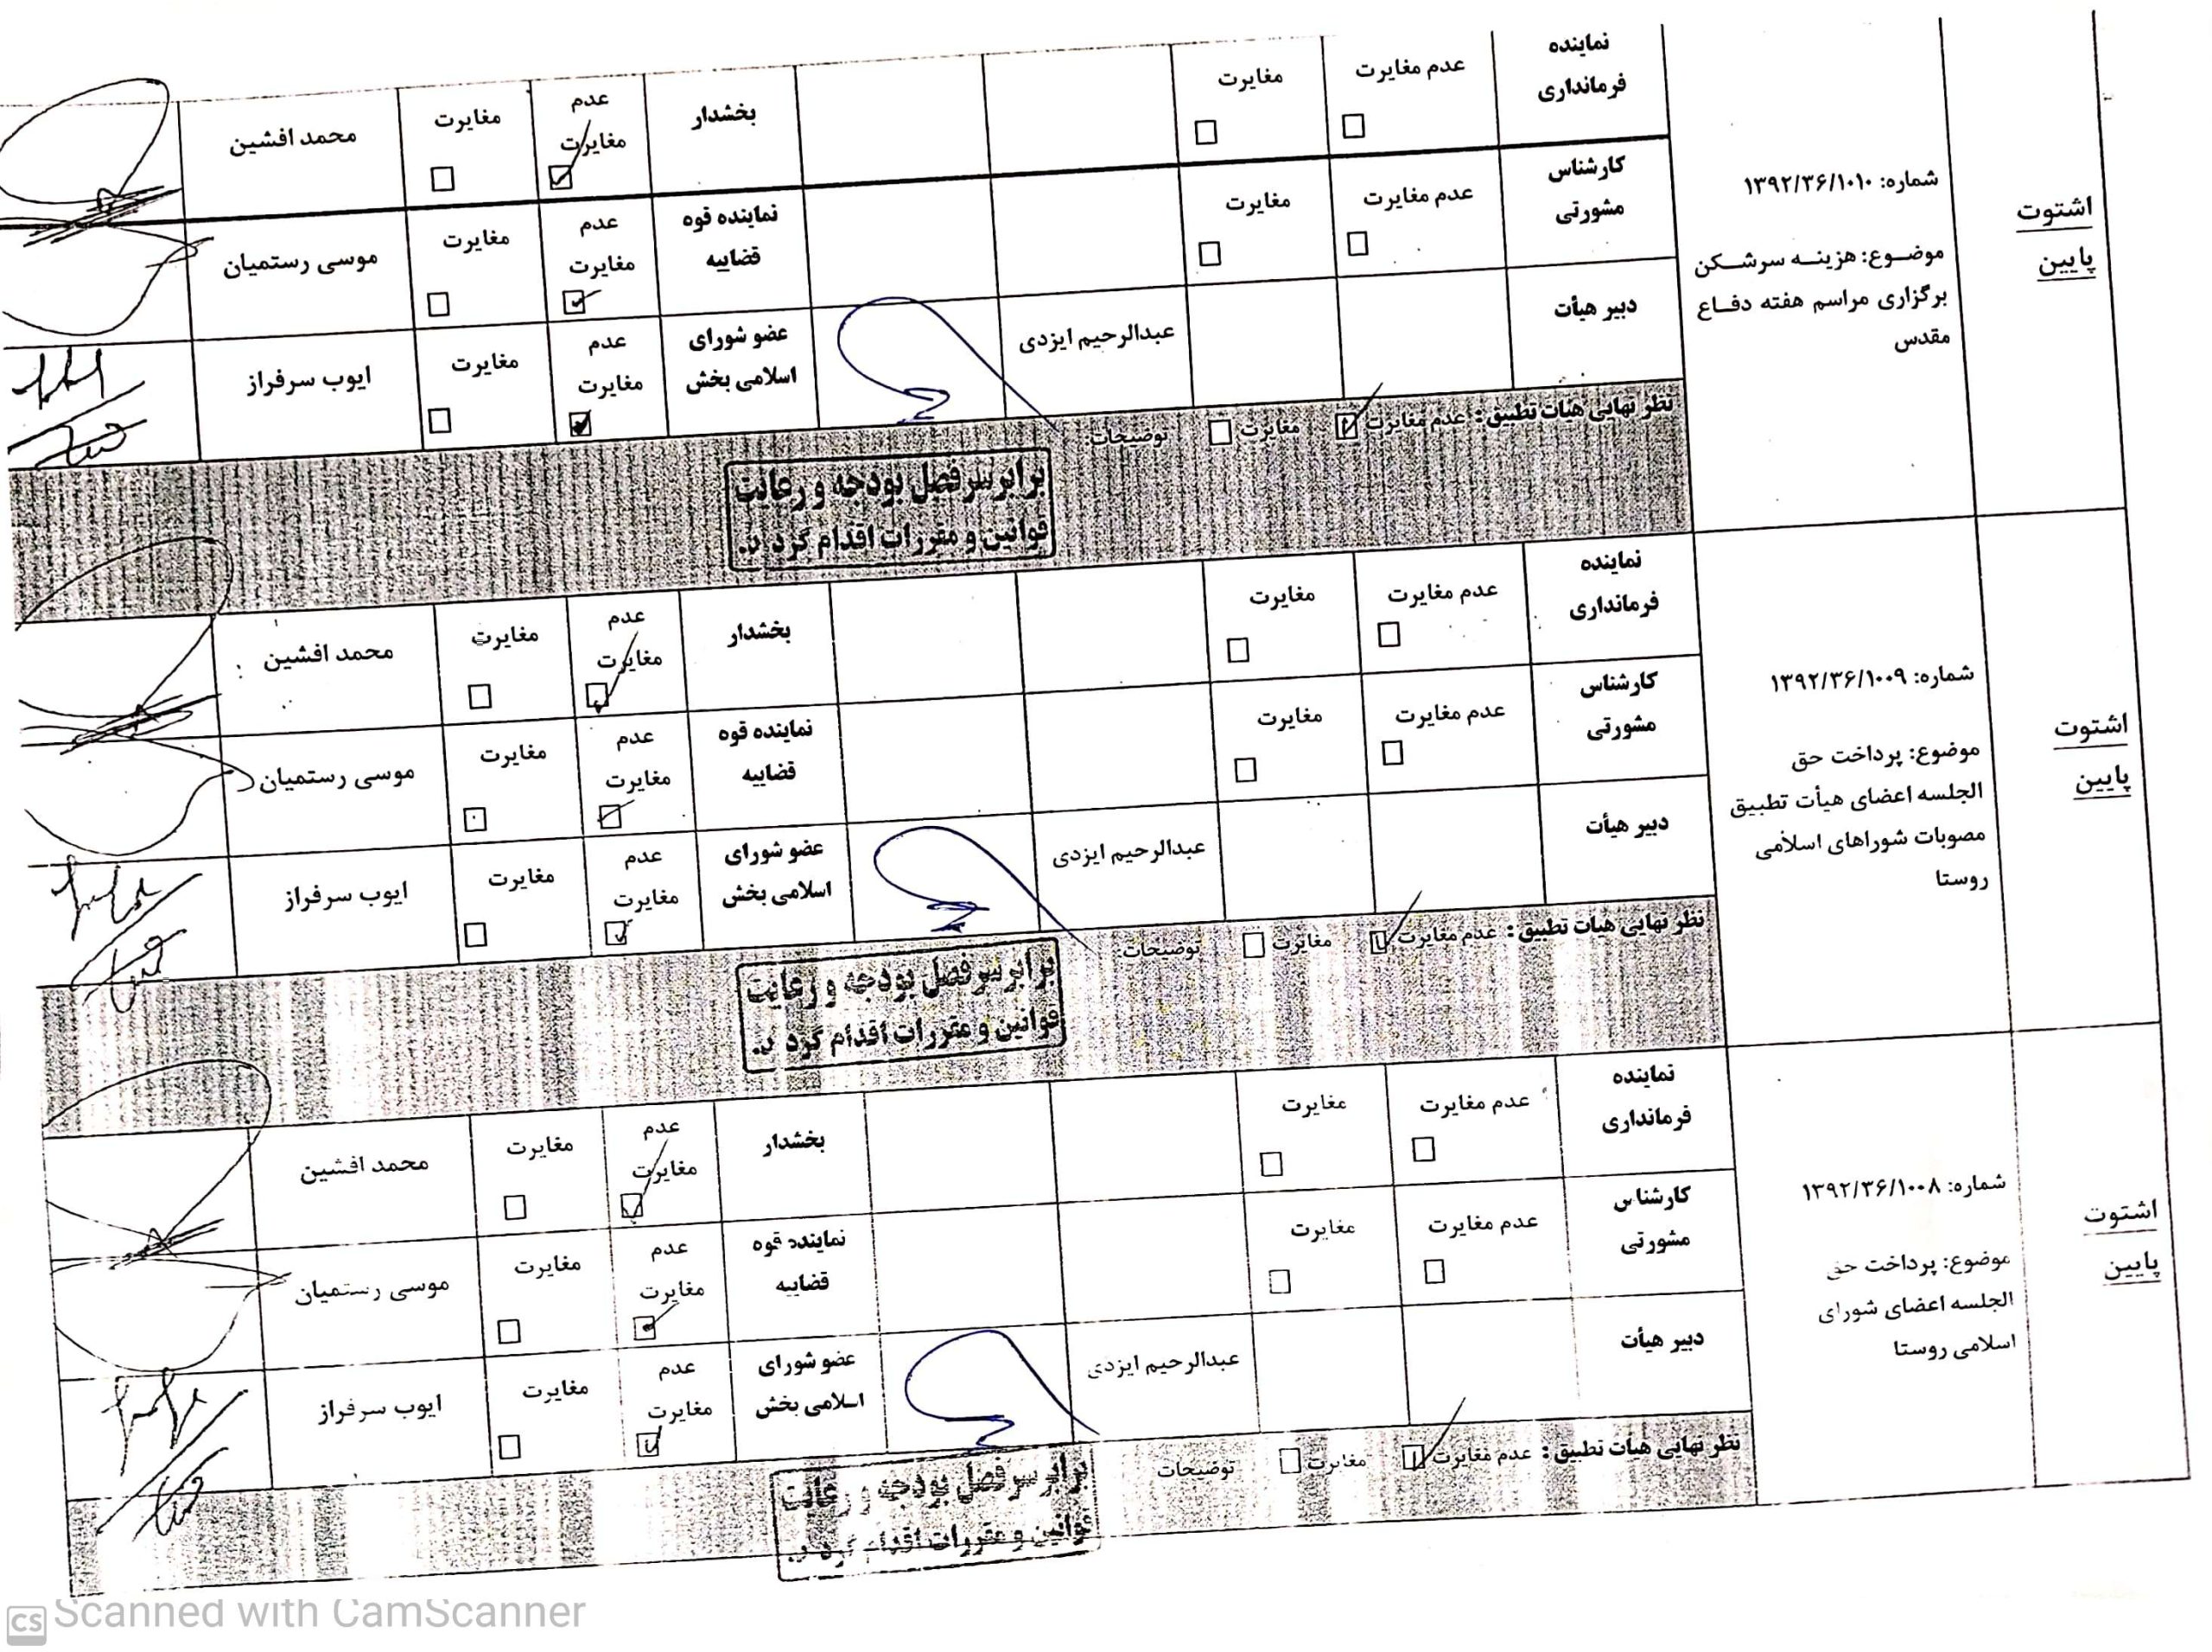 اشتوت
پایین
شماره: ۱۳۹۲/۳۶/۱۰۱۰
موضوع: هزینه سرشکن
برگزاری مراسم هفته دفاع
مقدس
نماینده
فرمانداری
عدم مغایرت
مغایرت
بخشدار
عدم
مغایرت
مغایرت
محمد افشین
کارشناس
مشورتی
عدم مغایرت
مغایرت
نماینده قوه
قضاییه
عدم
مغایرت
مغایرت
موسی رستمیان
دبیر هیأت
عبدالرحیم ایزدی
عضو شورای
اسلامی بخش
عدم
مغایرت
مغایرت
ایوب سرفراز
نظر نهایی هیات تطبیق: عدم مغایرت مغایرت توضیحات:
برابر سرفصل بودجه و رعایت
قوانین و مقررات اقدام گردد.
اشتوت
پایین
شماره: ۱۳۹۲/۳۶/۱۰۰۹
موضوع: پرداخت حق
الجلسه اعضای هیأت تطبیق
مصوبات شوراهای اسلامی
روستا
نماینده
فرمانداری
عدم مغایرت
مغایرت
بخشدار
عدم
مغایرت
مغایرت
محمد افشین
کارشناس
مشورتی
عدم مغایرت
مغایرت
نماینده قوه
قضاییه
عدم
مغایرت
مغایرت
موسی رستمیان
دبیر هیأت
عبدالرحیم ایزدی
عضو شورای
اسلامی بخش
عدم
مغایرت
مغایرت
ایوب سرفراز
نظر نهایی هیات تطبیق: عدم مغایرت مغایرت توضیحات:
برابر سرفصل بودجه و رعایت
قوانین و مقررات اقدام گردد.
اشتوت
پایین
شماره: ۱۳۹۲/۳۶/۱۰۰۸
موضوع: پرداخت حق
الجلسه اعضای شورای
اسلامی روستا
نماینده
فرمانداری
عدم مغایرت
مغایرت
بخشدار
عدم
مغایرت
مغایرت
محمد افشین
کارشناس
مشورتی
عدم مغایرت
مغایرت
نماینده قوه
قضاییه
عدم
مغایرت
مغایرت
موسی رستمیان
دبیر هیأت
عبدالرحیم ایزدی
عضو شورای
اسلامی بخش
عدم
مغایرت
مغایرت
ایوب سرفراز
نظر نهایی هیات تطبیق: عدم مغایرت مغایرت توضیحات
برابر سرفصل بودجه و رعایت
قوانین و مقررات اقدام گردد.
CS Scanned with CamScanner